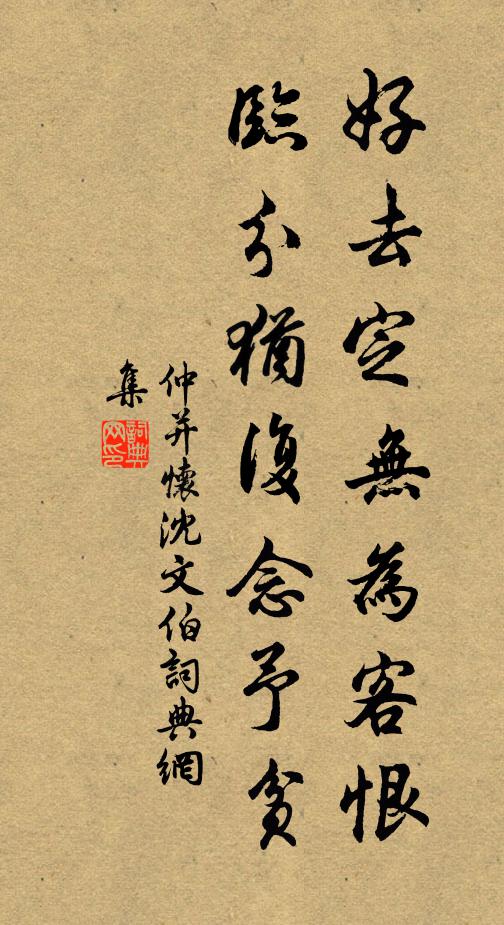 好去定無為客恨
臨分猶復念予貧
仲并懷沈文伯詞典網
集
詞典网印